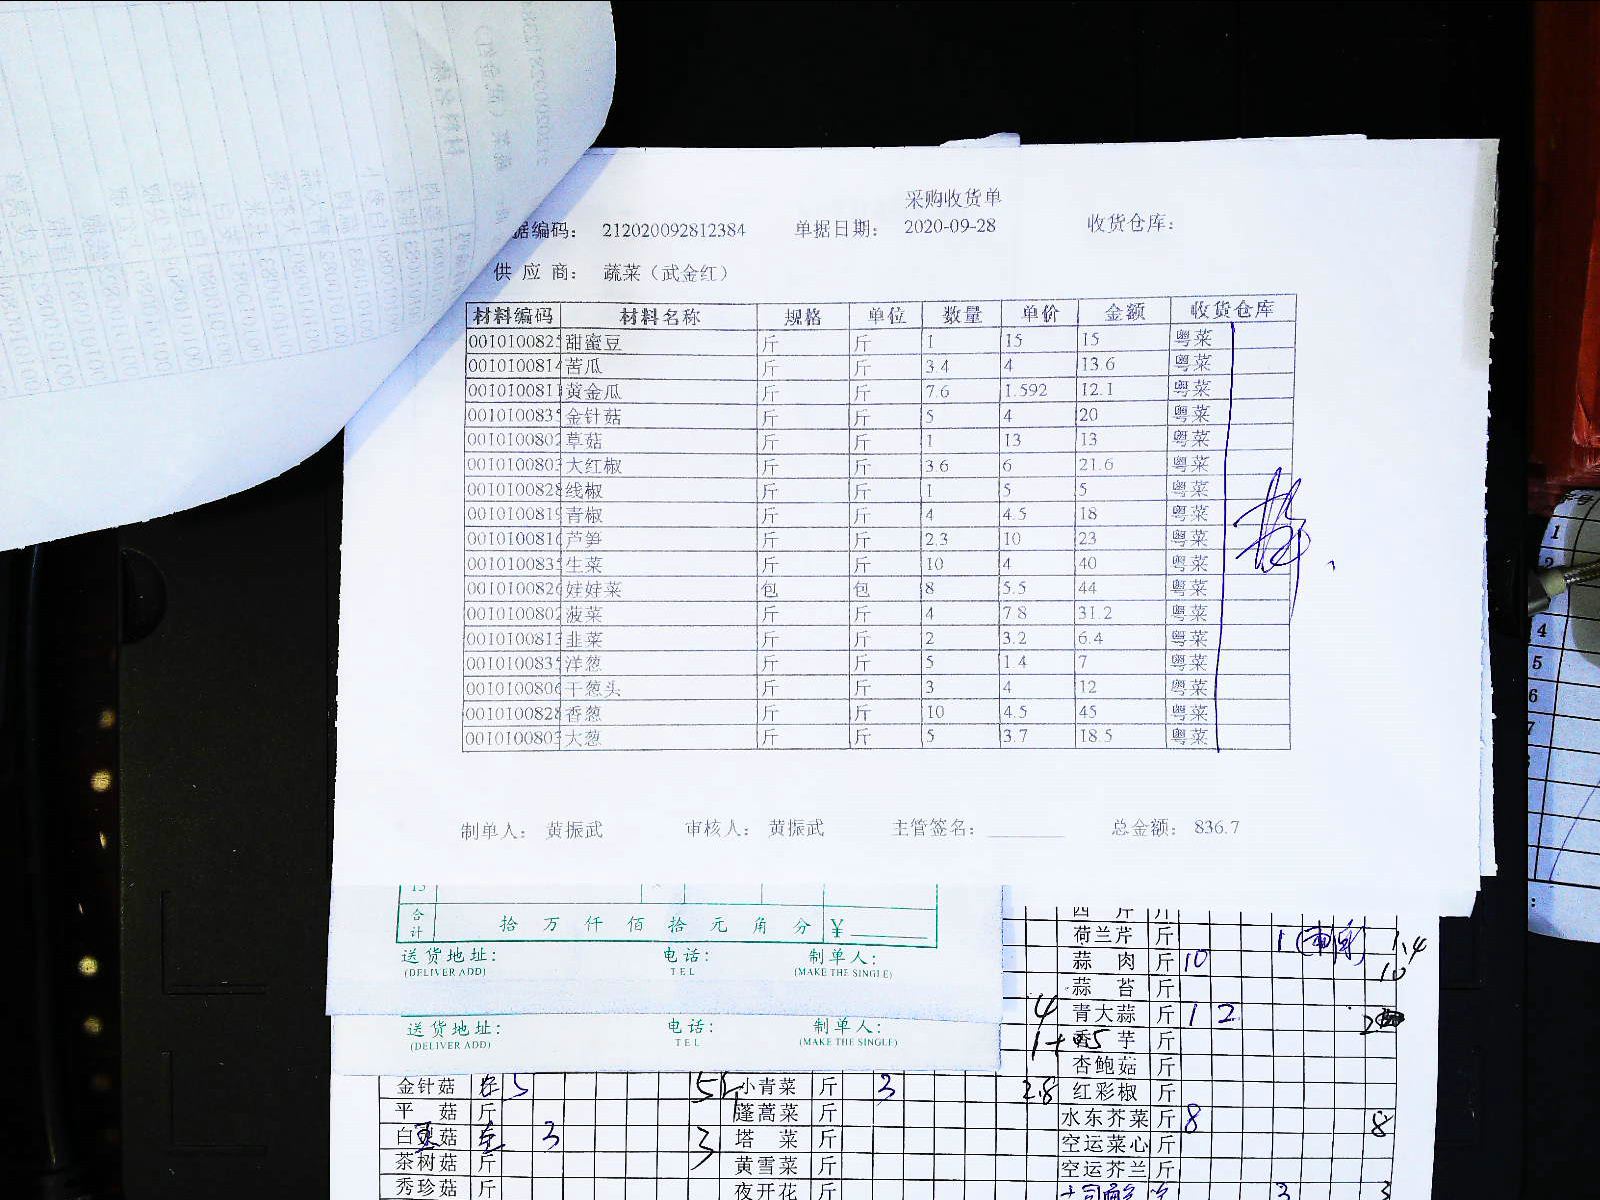 采购收货单
据编码： 212020092812384 单据日期： 2020-09-28 收货仓库：
供 应 商： 蔬菜（武金红）
材料编码 材料名称 规格 单位 数量 单价 金额 收货仓库
0010100825 甜蜜豆 斤 斤 1 15 15 粤菜
0010100814 苦瓜 斤 斤 3.4 4 13.6 粤菜
0010100811 黄金瓜 斤 斤 7.6 1.592 12.1 粤菜
0010100835 金针菇 斤 斤 5 4 20 粤菜
0010100802 草菇 斤 斤 1 13 13 粤菜
0010100803 大红椒 斤 斤 3.6 6 21.6 粤菜
0010100828 线椒 斤 斤 1 5 5 粤菜
0010100819 青椒 斤 斤 4 4.5 18 粤菜
0010100816 芦笋 斤 斤 2.3 10 23 粤菜
0010100835 生菜 斤 斤 10 4 40 粤菜
0010100826 娃娃菜 包 包 8 5.5 44 粤菜
0010100802 菠菜 斤 斤 4 7.8 31.2 粤菜
0010100813 韭菜 斤 斤 2 3.2 6.4 粤菜
0010100835 洋葱 斤 斤 5 1.4 7 粤菜
0010100806 干葱头 斤 斤 3 4 12 粤菜
0010100828 香葱 斤 斤 10 4.5 45 粤菜
0010100803 大葱 斤 斤 5 3.7 18.5 粤菜
制单人： 黄振武 审核人： 黄振武 主管签名： 总金额： 836.7
合计 拾 万 仟 佰 拾 元 角 分 ¥
送货地址： 电话： 制单人：
(DELIVER ADD) TEL (MAKE THE SINGLE)
送货地址： 电话： 制单人：
(DELIVER ADD) TEL (MAKE THE SINGLE)
西 芹 斤
荷兰芹 斤 1 1.4
蒜 肉 斤 10 10
蒜 苔 斤
4 青大蒜 斤 1 2 2
芋 斤
杏鲍菇 斤
金针菇 5 5 小青菜 斤 3 2.8 红彩椒 斤
平 菇 斤 蓬蒿菜 斤 水东芥菜 斤 8 8
白 菇 3 3 塔 菜 斤 空运菜心 斤
茶树菇 斤 黄雪菜 斤 空运芥兰 斤
秀珍菇 斤 夜开花 斤 3 3
1
4
5
6
7